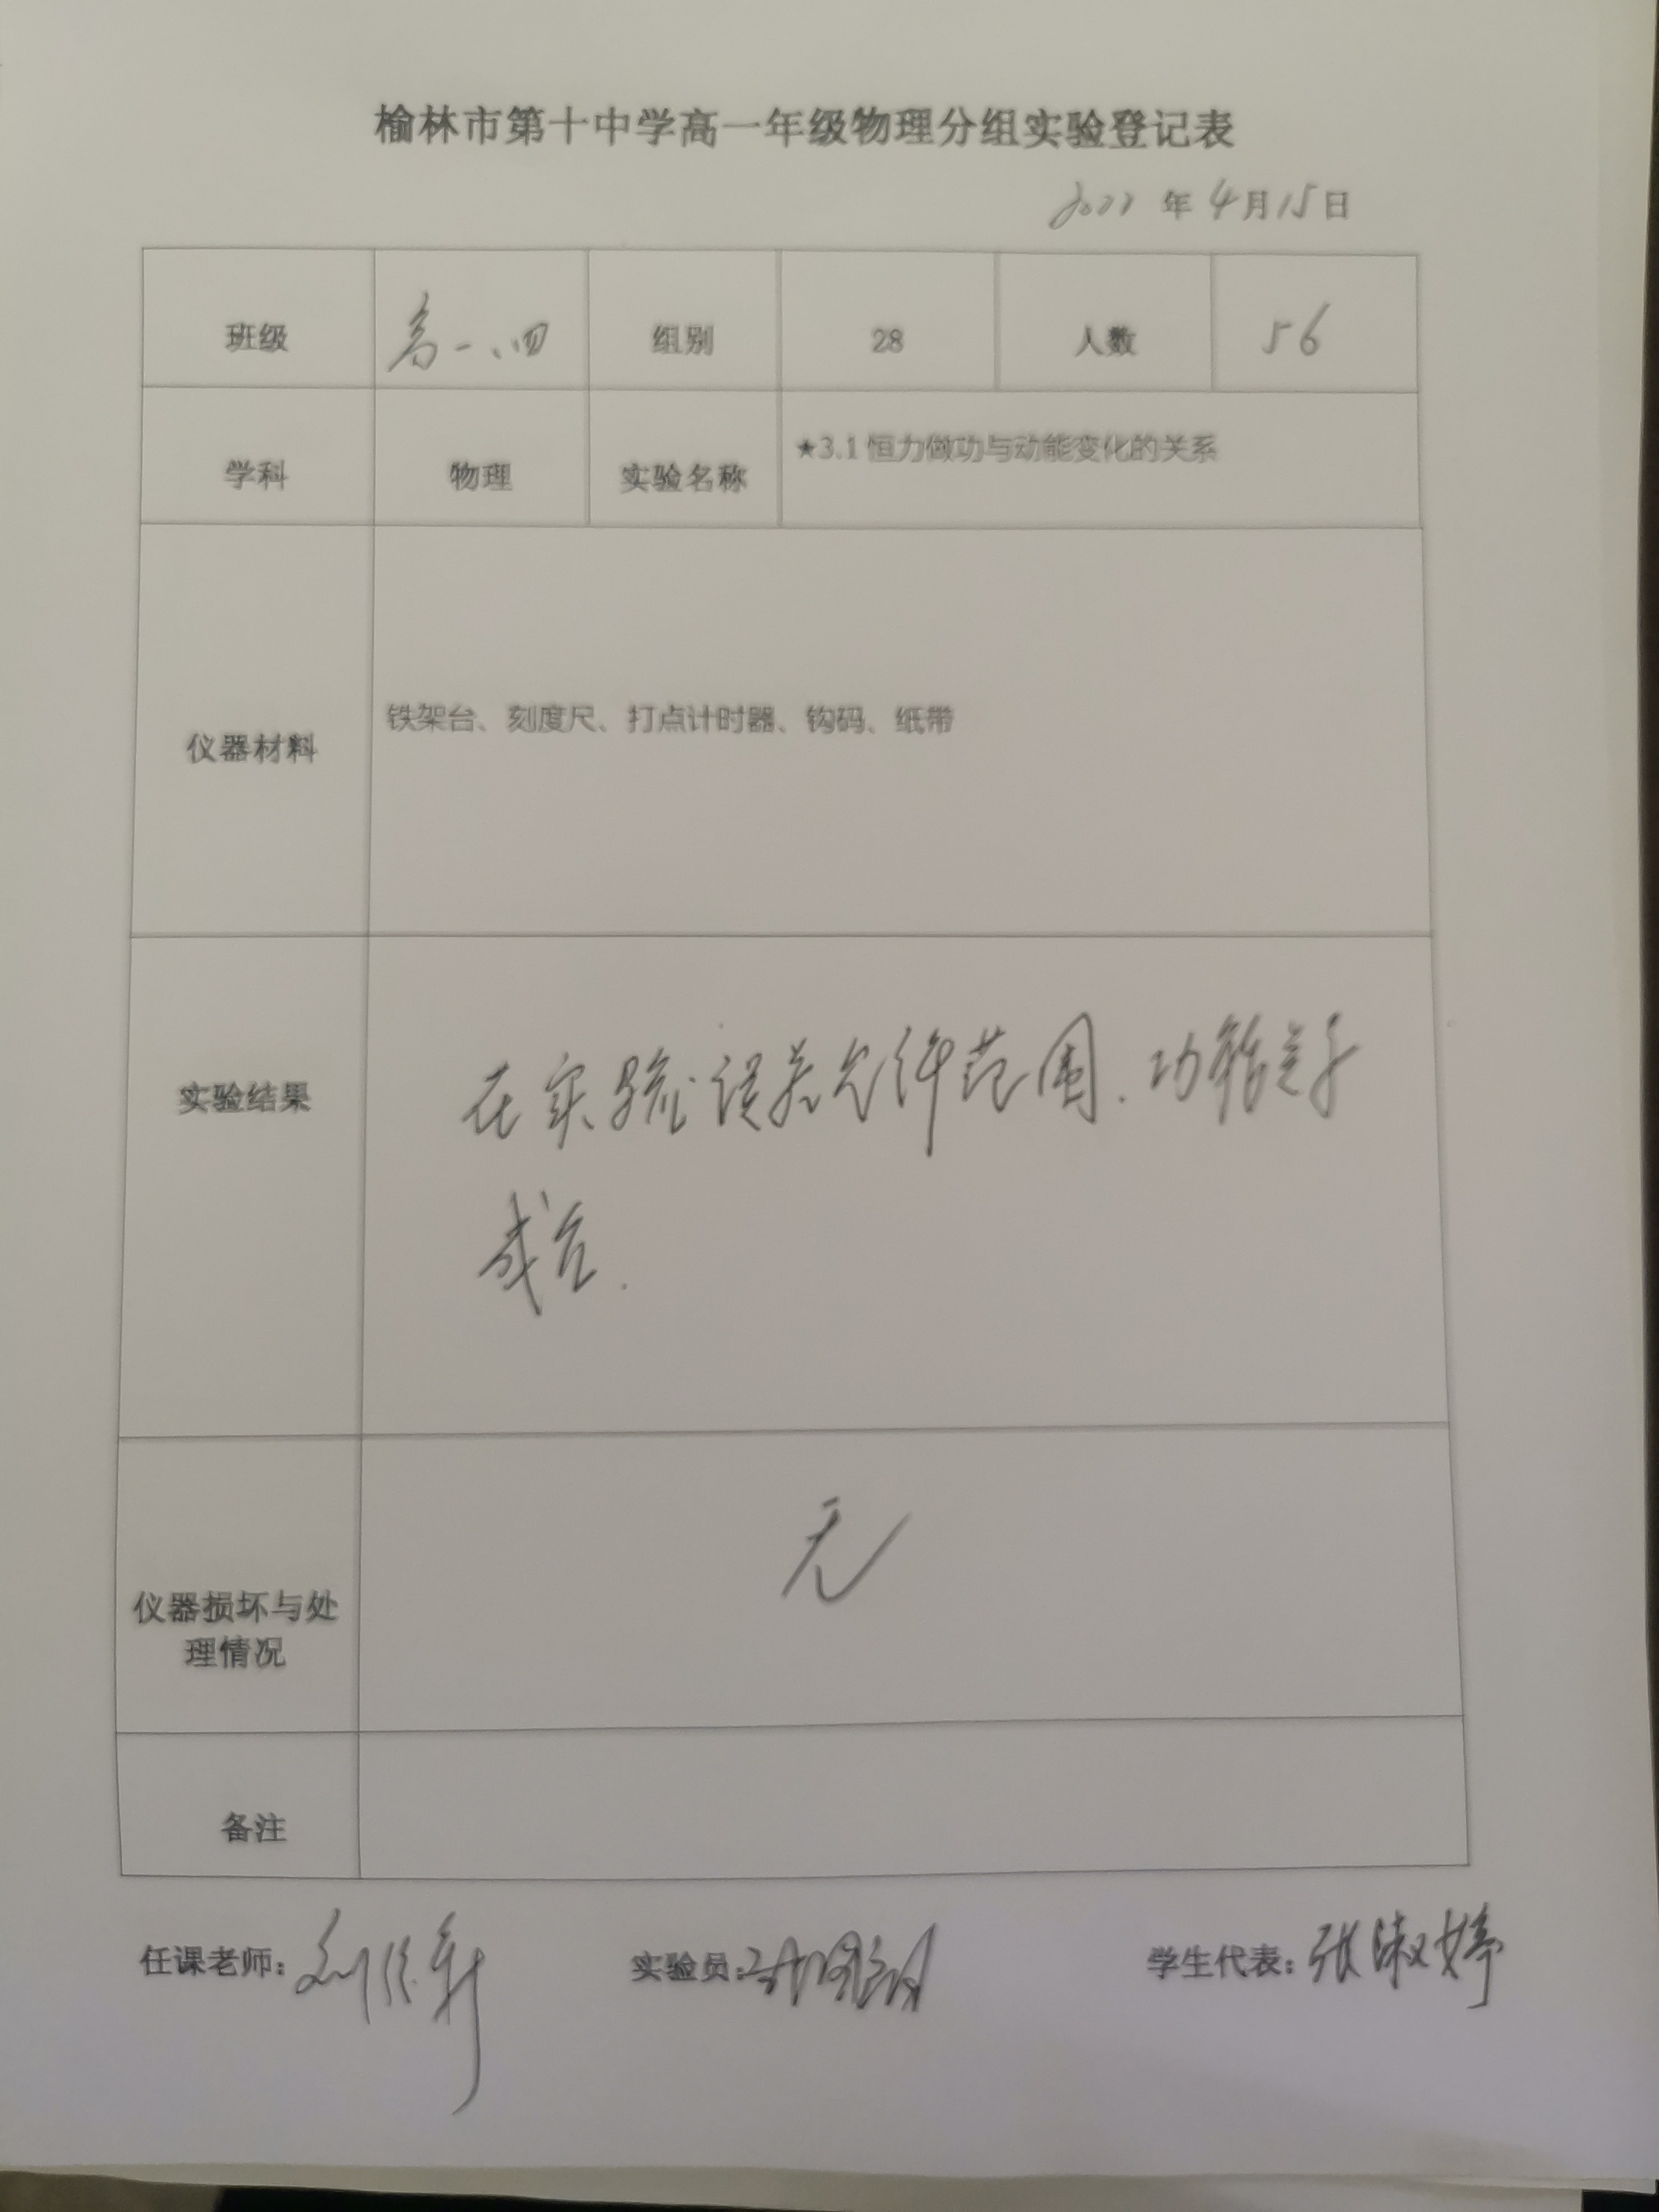 榆林市第十中学高一年级物理分组实验登记表
2022 年 4 月 15 日
班级 高一、四 组别 28 人数 56
学科 物理 实验名称 ★3.1 恒力做功与动能变化的关系
仪器材料 铁架台、刻度尺、打点计时器、钩码、纸带
实验结果 在实验误差允许范围.功能关系
成立.
仪器损坏与处
理情况
无
备注
任课老师: 实验员: 学生代表: 张淑婷